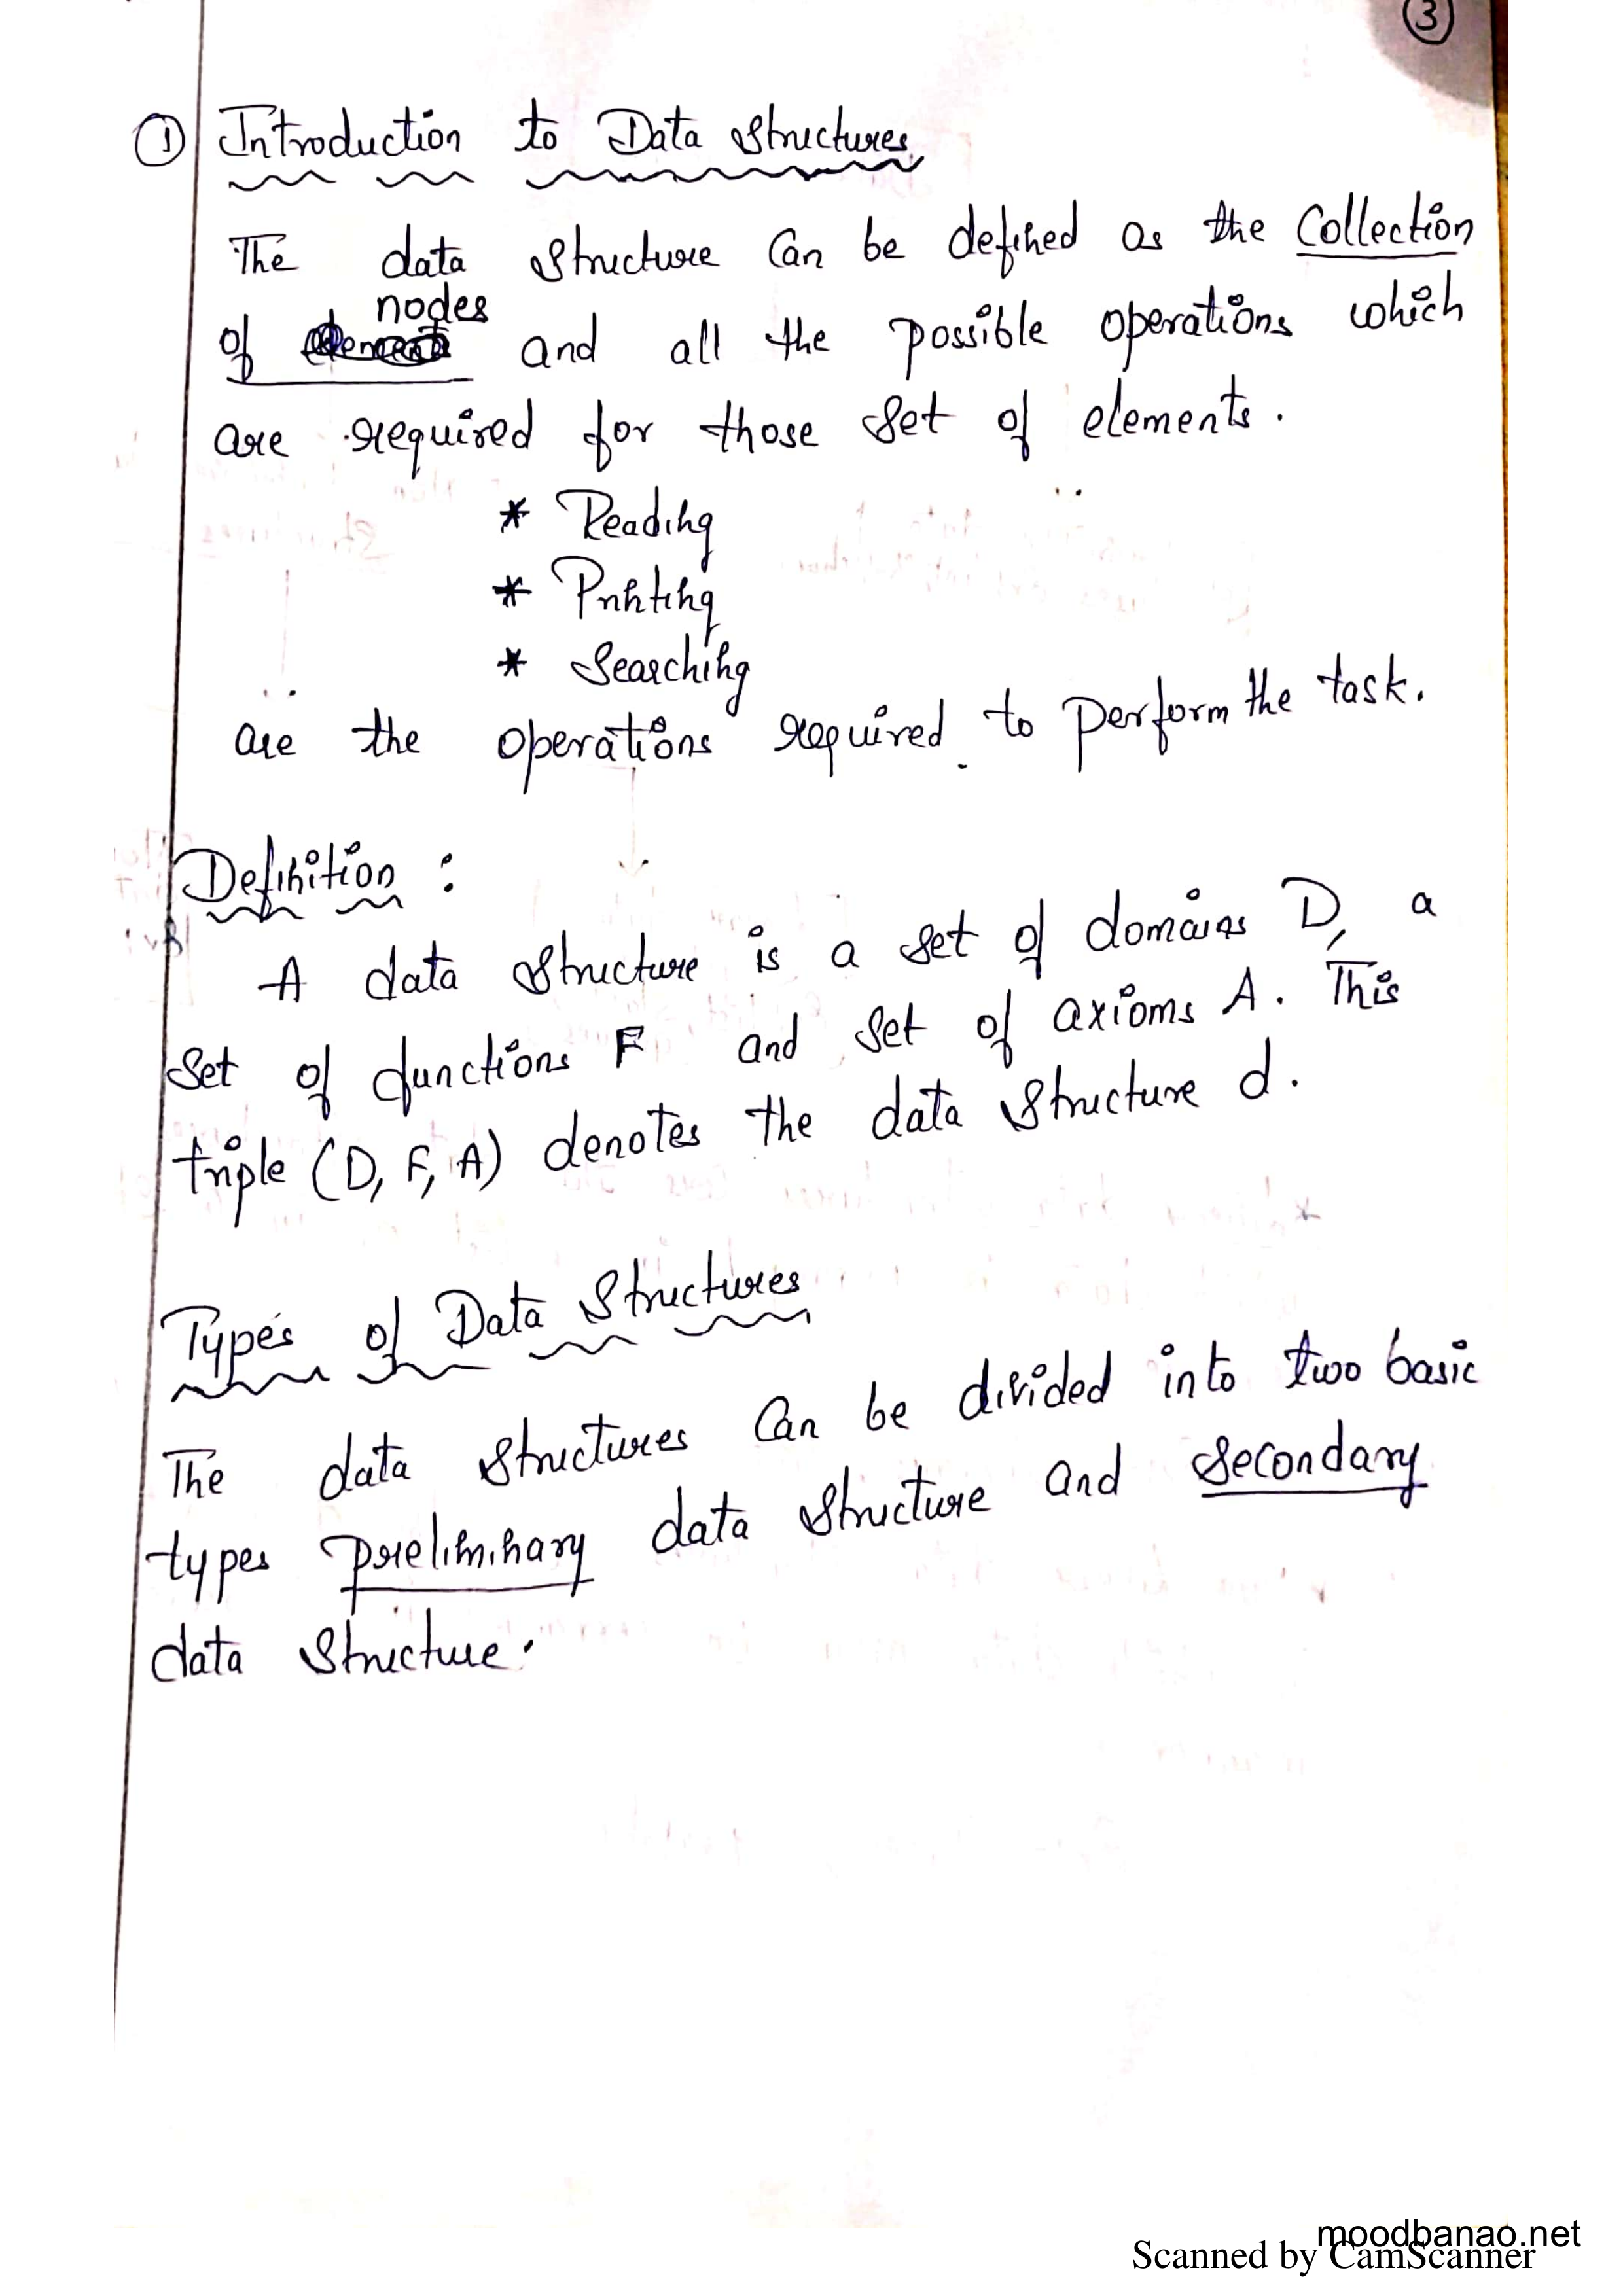 3
① Introduction to Data Structures
The data structure can be defined as the Collection
nodes
of and all the possible operations which
are required for those set of elements.
* Reading
* Printing
* Searching
are the operations required to perform the task.
Definition :
A data structure is a set of domains D, a
set of functions F and set of axioms A. This
triple (D, F, A) denotes the data structure d.
Types of Data Structures
The data structures can be divided into two basic
types preliminary data structure and secondary
data structure.
moodbanao.net
Scanned by CamScanner